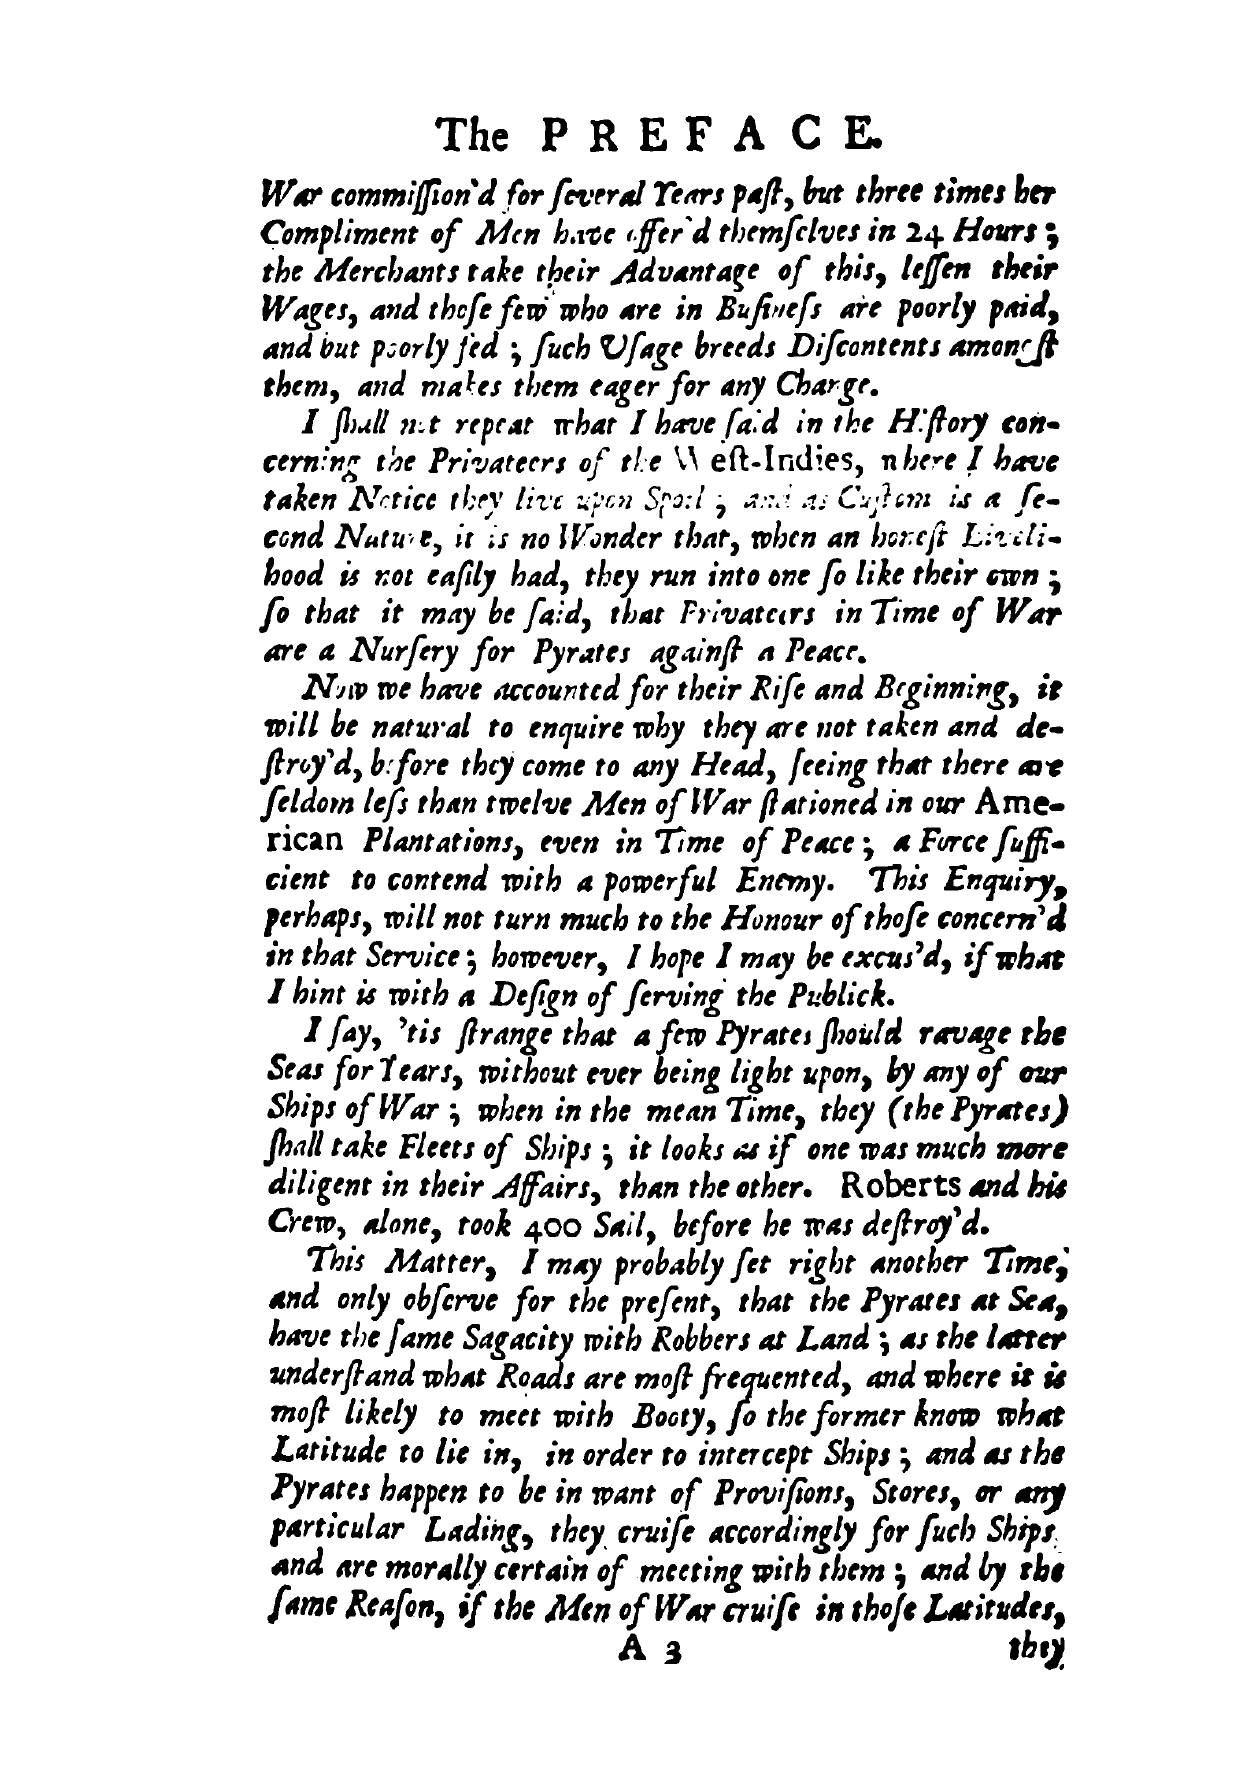 The PREFACE.
War commiſſion'd for ſeveral Years paſt, but three times her
Compliment of Men have offer'd themſelves in 24 Hours;
the Merchants take their Advantage of this, leſſen their
Wages, and thoſe few who are in Buſineſs are poorly paid,
and but poorly fed; ſuch Uſage breeds Diſcontents amongſt
them, and makes them eager for any Change.
I ſhall not repeat what I have ſaid in the Hiſtory con-
cerning the Privateers of the Weſt-Indies, where I have
taken Notice they live upon Spoil; and as Cuſtom is a ſe-
cond Nature, it is no Wonder that, when an honeſt Liveli-
hood is not eaſily had, they run into one ſo like their own;
ſo that it may be ſaid, that Privateers in Time of War
are a Nurſery for Pyrates againſt a Peace.
Now we have accounted for their Riſe and Beginning, it
will be natural to enquire why they are not taken and de-
ſtroy'd, before they come to any Head, ſeeing that there are
ſeldom leſs than twelve Men of War ſtationed in our Ame-
rican Plantations, even in Time of Peace; a Force ſuffi-
cient to contend with a powerful Enemy. This Enquiry,
perhaps, will not turn much to the Honour of thoſe concern'd
in that Service; however, I hope I may be excus'd, if what
I hint is with a Deſign of ſerving the Publick.
I ſay, 'tis ſtrange that a few Pyrates ſhould ravage the
Seas for Years, without ever being light upon, by any of our
Ships of War; when in the mean Time, they (the Pyrates)
ſhall take Fleets of Ships; it looks as if one was much more
diligent in their Affairs, than the other. Roberts and his
Crew, alone, took 400 Sail, before he was deſtroy'd.
This Matter, I may probably ſet right another Time,
and only obſerve for the preſent, that the Pyrates at Sea,
have the ſame Sagacity with Robbers at Land; as the latter
underſtand what Roads are moſt frequented, and where it is
moſt likely to meet with Booty, ſo the former know what
Latitude to lie in, in order to intercept Ships; and as the
Pyrates happen to be in want of Proviſions, Stores, or any
particular Lading, they cruiſe accordingly for ſuch Ships,
and are morally certain of meeting with them; and by the
ſame Reaſon, if the Men of War cruiſe in thoſe Latitudes,
A 3 they